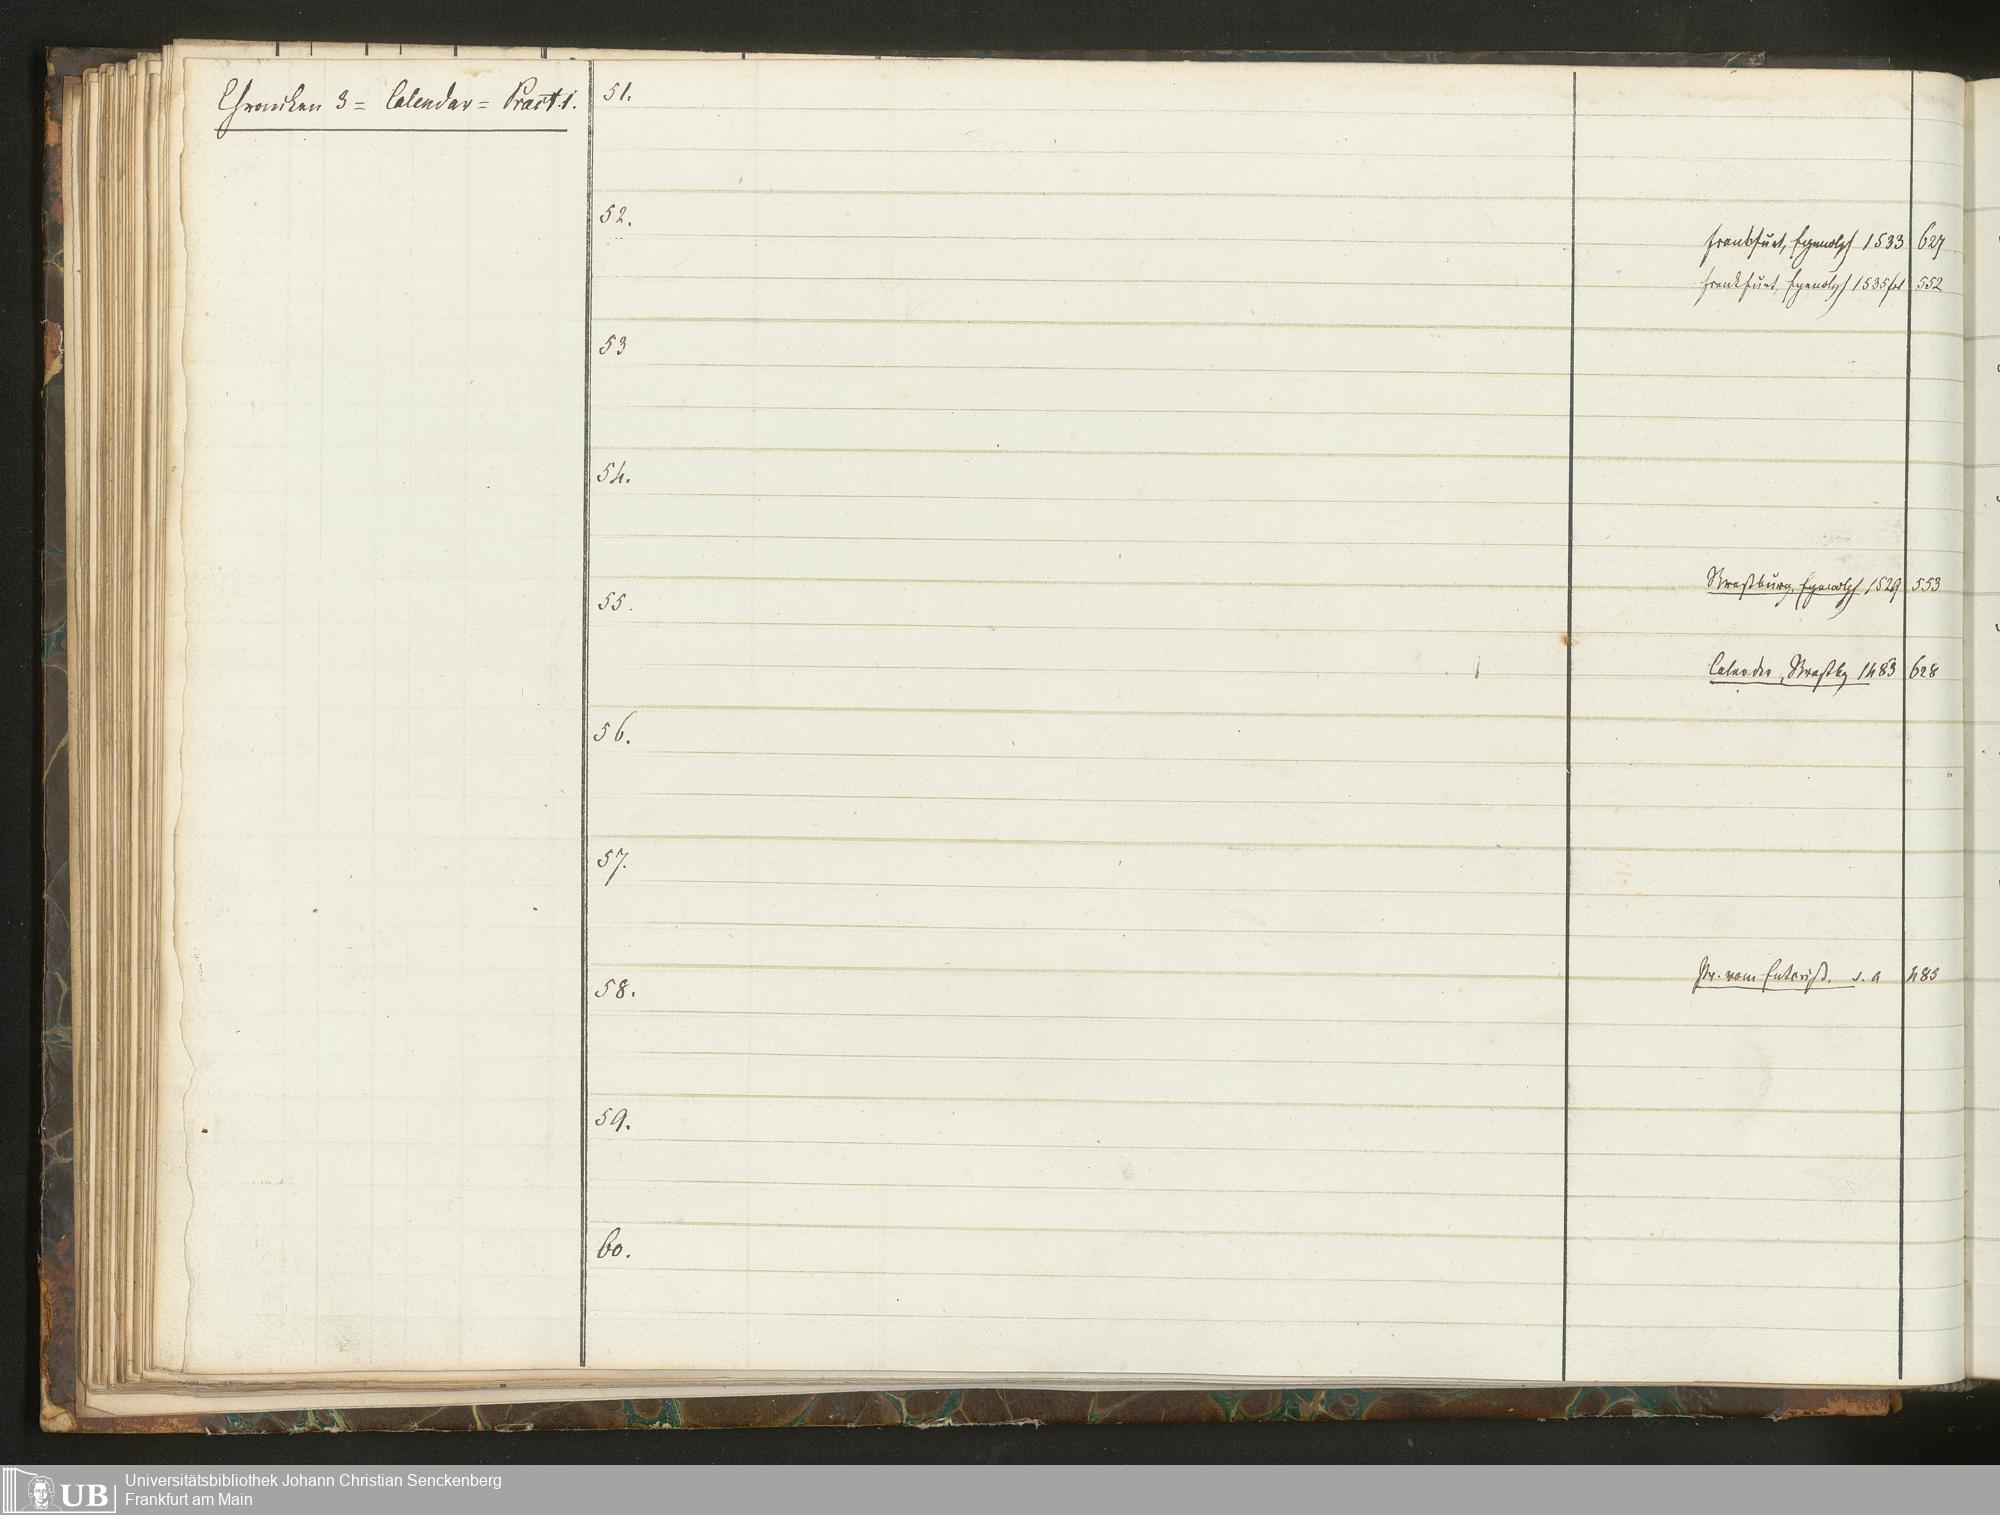 Chroniken 3 = Calendar = Pract. 1.
51.
52.
Frankfurt, Egenolph 1533 627
Frankfurt, Egenolph 1535 fol 552
53
54.
Straßburg, Egenolph 1529 553
55.
Calender, Straßbg 1483 628
56.
57.
Pr. vom s. a 485
58.
59.
60.
UB
Universitätsbibliothek Johann Christian Senckenberg
Frankfurt am Main